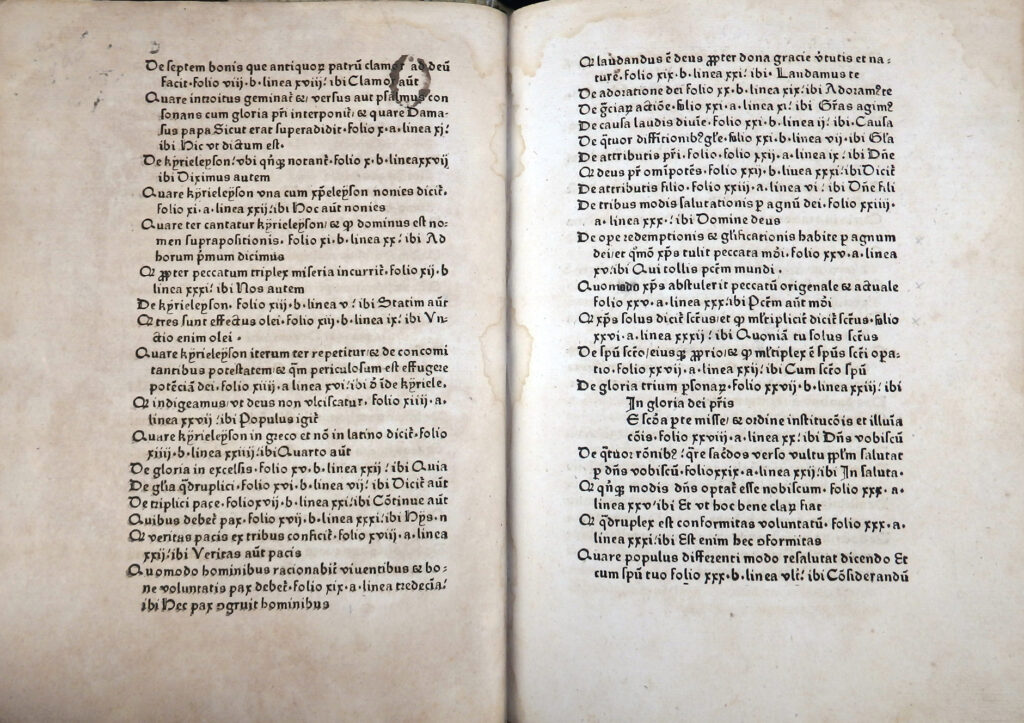 De septem bonis que antiquoꝝ patrū clamor ad deū
facit. folio viij. b. linea xviij. ibi Clamor aūt
Quare introitus geminat᷑ ⁊ versus aut psalmus con
sonans cum gloria pr̄i interponit᷑ ⁊ quare Dama⸗
sus papa Sicut erat superadidit. folio x. a. linea xj.
ibi Hic vt dictum est.
De kyrieleyson. vbi qn̄qꝫ notant᷑. folio x. b. linea xxvij
ibi Diximus autem
Quare kyrieleyson vna cum xp̄eleyson nonies dicit᷑.
folio xi. a. linea xxij. ibi Hoc aūt nonies
Quare ter cantatur kyrieleyson ⁊ ꝙ dominus est no⸗
men suprapositionis. folio xi. b. linea xx. ibi Ad
horum pͥmum dicimus
Qꝫ ꝓpter peccatum triplex miseria incurrit᷑. folio xij. b
linea xxxi. ibi Nos autem
De kyrieleyson. folio xiij. b. linea v. ibi Statim aūt
Qꝫ tres sunt effectus olei. folio xiij. b. linea ix. ibi Vn⸗
ctio enim olei.
Quare kyrieleyson iterum ter repetitur ⁊ de concomi
tantibus potestatem ⁊ qm̄ periculosum est effugere
potēciā dei. folio xiiij. a linea xvi. ibi ō īde kyriele.
Qꝫ indigeamus vt deus non vlciscatur. folio xiiij. a.
linea xxvij. ibi Populus igit᷑
Quare kyrieleyson in greco et nō in latino dicit᷑. folio
xiiij. b. linea xxiiij. ibi Quarto aūt
De gloria in excelsis. folio xv. b. linea xxij. ibi Quia
De gl̄ia q̄druplici. folio xvi. b. linea vij. ibi Dicit᷑ aūt
De triplici pace. folio xvij. b. linea xxi. ibi Cōtinue aūt
Quibus debet᷑ pax. folio xvij. b. linea xxxi. ibi Hys. n
Qꝫ veritas pacis ex tribus conficit᷑. folio xviij. a. linea
xxij. ibi Veritas aūt pacis
Quomodo hominibus racionabilit᷑ viuentibus ⁊ bo⸗
ne voluntatis pax debet᷑. folio xix. a. linea tredecīa.
ibi Hec pax ꝯgruit hominibus
Qꝫ laudandus ē deus ꝓpter dona gracie v̓tutis et na⸗
ture. folio xix. b. linea xxi. ibi. Laudamus te
De adoratione dei folio xx. b. linea xix. ibi Adoram⁹te
De gr̄ciaꝝ actiōe. folio xxi. a. linea xi. ibi Gr̄as agim⁹
De causa laudis diuīe. folio xxi. b. linea ij. ibi Causa
De q̄tuor diffitionib⁹ gl̄e. folio xxi. b. linea vij. ibi Gl̄a
De attributis pr̄i. folio. folio xxij. a. linea ix. ibi Dn̄e
Qꝫ deus pr̄ om̄ipotēs. folio xxij. b. liuea xxxi. ibi Dicit᷑
De attributis filio. folio xxiij. a. linea vi. ibi Dn̄e fili
De tribus modis salutationis ꝑ agnū dei. folio xxiiij.
a. linea xxx. ibi Domine deus
De ope redemptionis ⁊ gl̄ificationis habite ꝑ agnum
dei et qͫmō xp̄s tulit peccata mōi. folio xxv. a. linea
xv. ibi Qui tollis pctm̄ mundi.
Quomodo xp̄s abstulerit peccatū origenale ⁊ actuale
folio xxv. a. linea xxx. ibi Pctm̄ aūt mōi
Qꝫ xp̄s solus dicit᷑ sct̄us et ꝙ ml̄tiplicit᷑ dicit᷑ sct̄us. folio
xxvi. a. linea xxxij. ibi Quoniā tu solus sct̄us
De sp̄u sct̄o eiusqꝫ ꝓprio ⁊ ꝙ ml̄tiplex ē sp̄us sct̄i opa⸗
tio. folio xxvij. a. linea xxij. ibi Cum sct̄o sp̄u
De gloria trium ꝑsonaꝝ. folio xxvij. b. linea xxiij. ibi
In gloria dei pr̄is
Escōa ꝑte misse ⁊ ordine institucōis et illuīa
cōis. folio xxviij. a. linea xx. ibi Dn̄s vobiscū
De q̄tuor rōnib⁹ q̄re sac̄dos verso vultu pplm̄ salutat
ꝑ dn̄s vobiscū. folio xxix. a. linea xxij. ibi In saluta.
Qꝫ qn̄qꝫ modis dn̄s optat᷑ esse nobiscum. folio xxx. a.
linea xxv ibi Et vt hoc bene claꝝ fiat
Qꝫ q̄druplex est conformitas voluntatū. folio xxx. a.
linea xxxi. ibi Est enim hec ꝯformitas
Quare populus differenti modo resalutat dicendo Et
cum sp̄u tuo folio xxx. b. linea vlt᷑. ibi Cōsiderandū